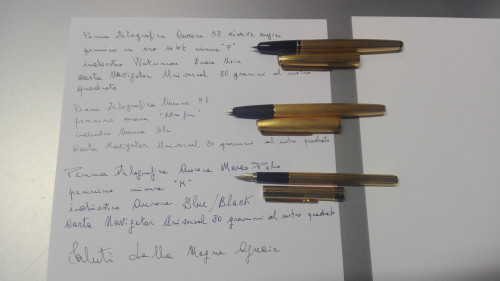 Penna stilografica Aurora 98 riserva magica
pennino in oro 14 kt misura "F"
inchiostro Waterman
carta Navigator Universal 80 grammi al metro
quadrato
Penna stilografica Aurora 98
pennino misura
inchiostro Aurora Blu
carta Navigator Universal 80 grammi al metro quadrato
Penna stilografica Aurora Marco Polo
pennino misura "M"
inchiostro Aurora Blue/Black
carta Navigator Universal 80 grammi al metro quadrato
Saluti dalla Magna Grecia